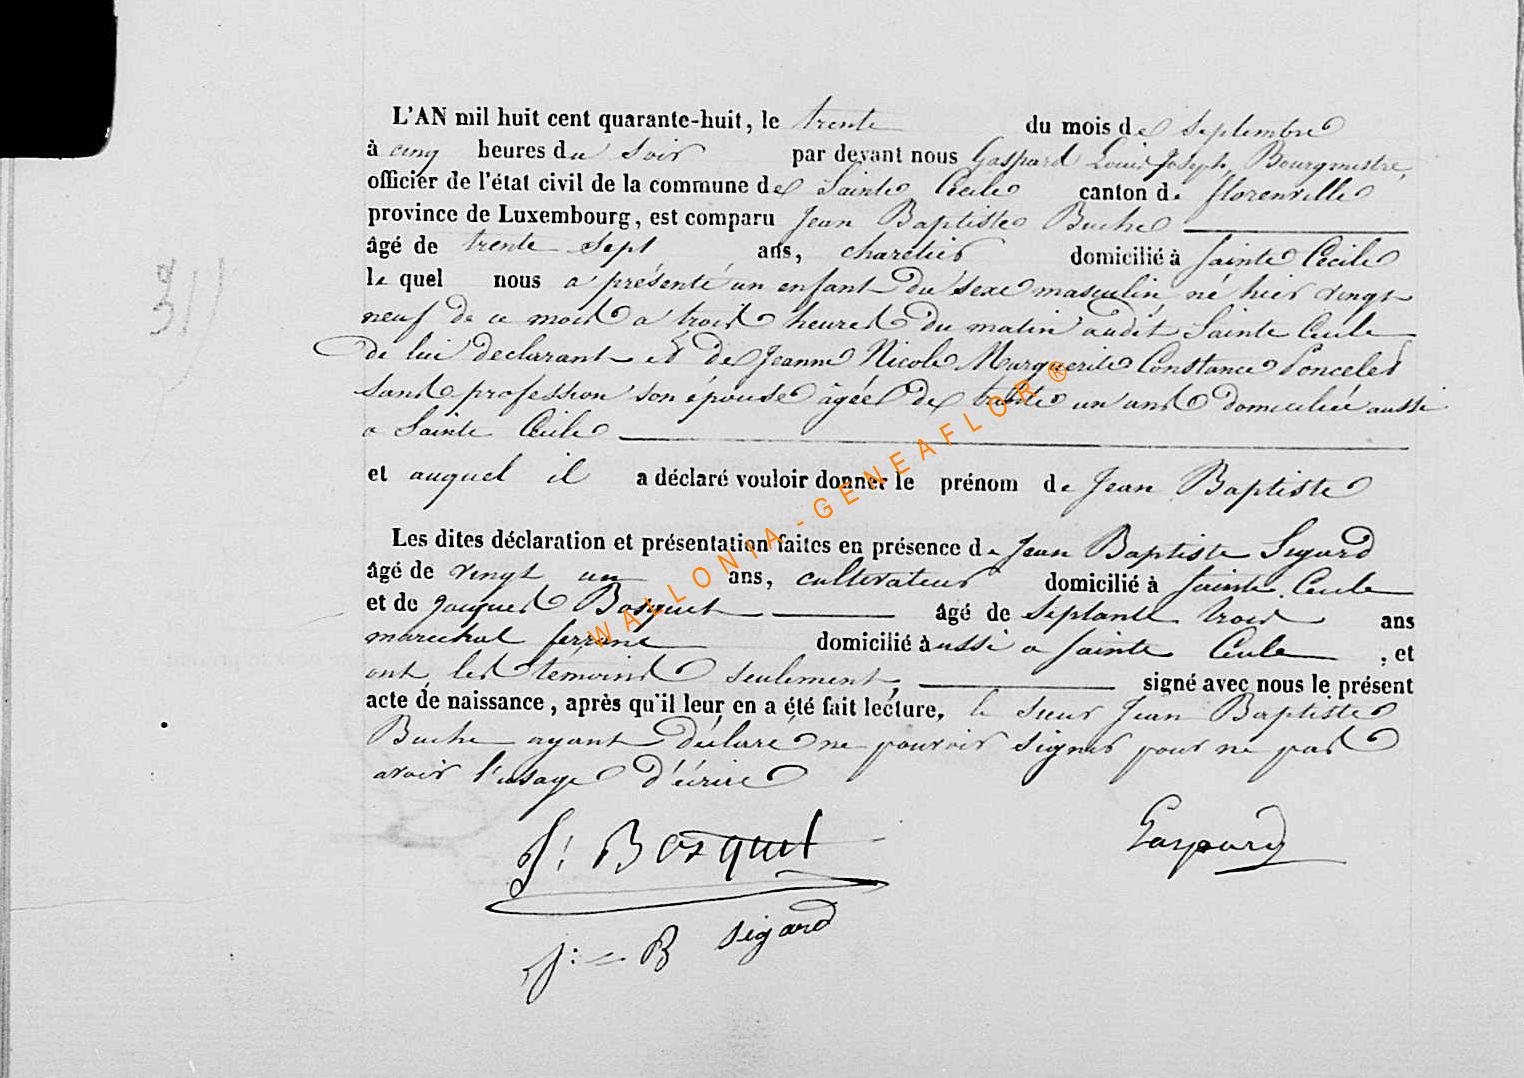 L'AN mil huit cent quarante-huit, le trente du mois de Septembre
à cinq heures du soir par devant nous Gaspard Louis Joseph, Bourgmestre,
officier de l'état civil de la commune de Sainte Cécile canton de florenville
province de Luxembourg, est comparu Jean Baptiste Buche
âgé de trente sept ans, charetier domicilié à Sainte Cécile
le quel nous a présenté un enfant du sexe masculin né hier vingt
neuf de ce mois a trois heures du matin audit Sainte Cecile
de lui declarant et de Jeanne Nicole Marguerite Constance Poncelet
sans profession son épouse âgée de trente un ans domiciliée aussi
a Sainte Cécile
et auquel il a déclaré vouloir donner le prénom de Jean Baptiste
Les dites déclaration et présentation faites en présence de Jean Baptiste Sigard
âgé de vingt un ans, cultivateur domicilié à Sainte Cecile
et de Jacques Bosquet âgé de septante trois ans
marechal ferrant domicilié aussi a Sainte Cecile, et
ont les temoins seulement, signé avec nous le présent
acte de naissance, après qu'il leur en a été fait lecture, le sieur Jean Baptiste
Buche ayant déclaré ne pouvoir signer pour ne pas
avoir l'usage d'écrire
J: Bosquet
Gaspard
J: = B Sigard
WALLONIA-GENEAFLOR®